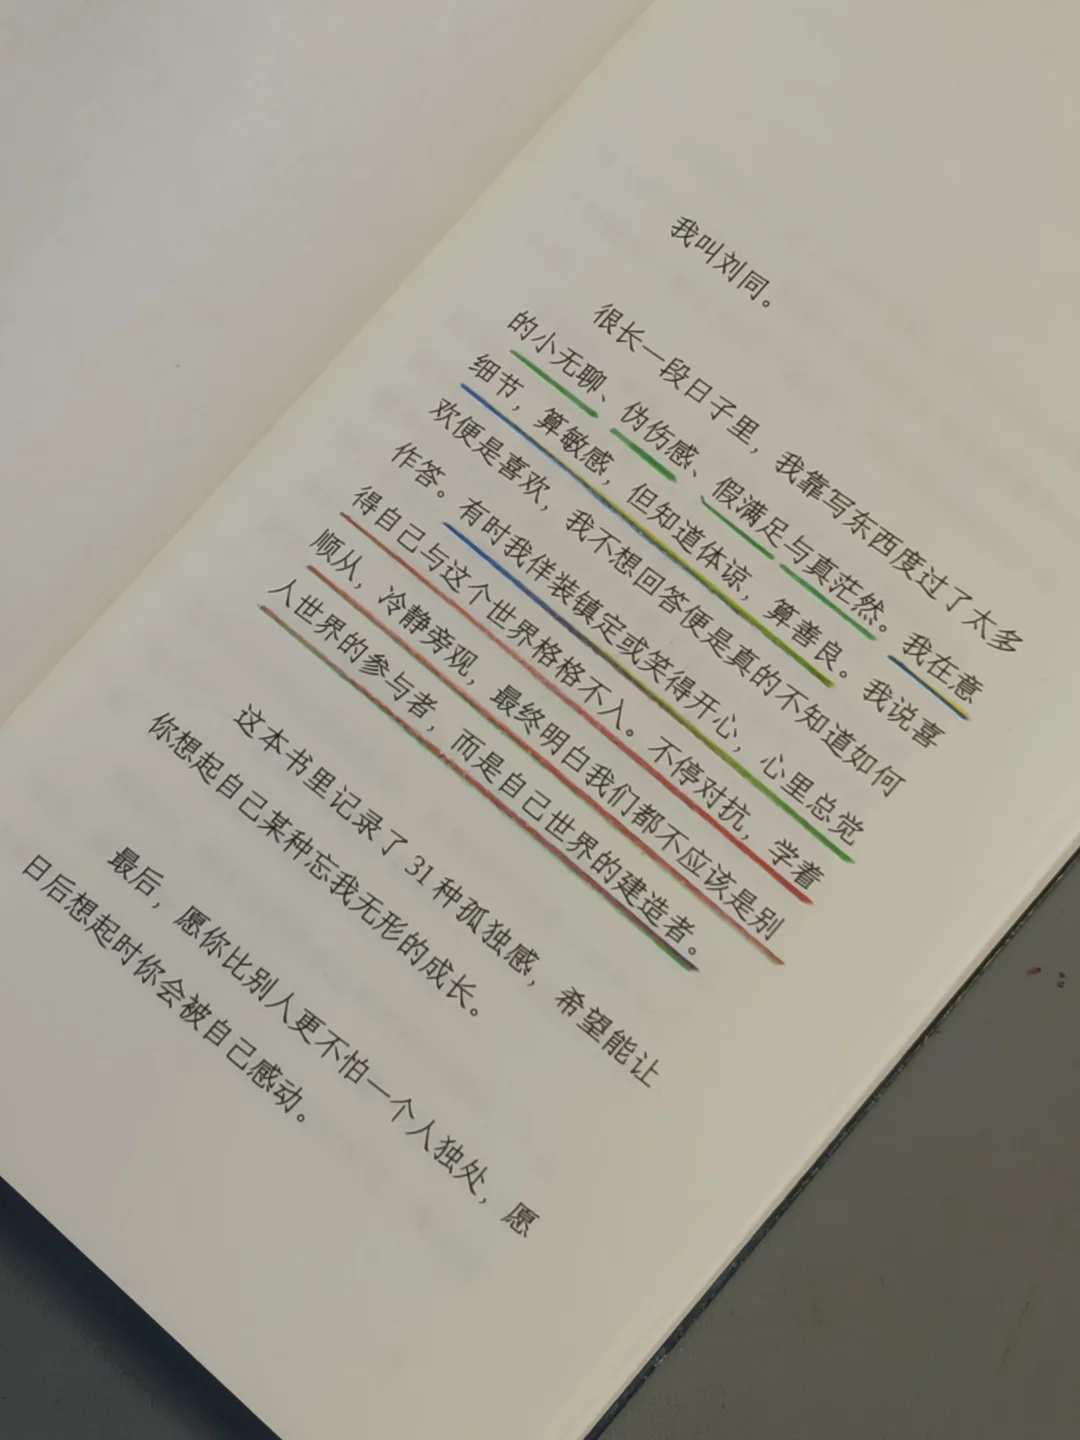 我叫刘同。
很长一段日子里，我靠写东西度过了太多
的小无聊、伪伤感、假满足与真茫然。我在意
细节，算敏感，但知道体谅，算善良。我说喜
欢便是喜欢，我不想回答便是真的不知道如何
作答。有时我佯装镇定或笑得开心，心里总觉
得自己与这个世界格格不入。不停对抗，学着
顺从，冷静旁观，最终明白我们都不应该是别
人世界的参与者，而是自己世界的建造者。
这本书里记录了 31 种孤独感，希望能让
你想起自己某种忘我无形的成长。
最后，愿你比别人更不怕一个人独处，愿
日后想起时你会被自己感动。